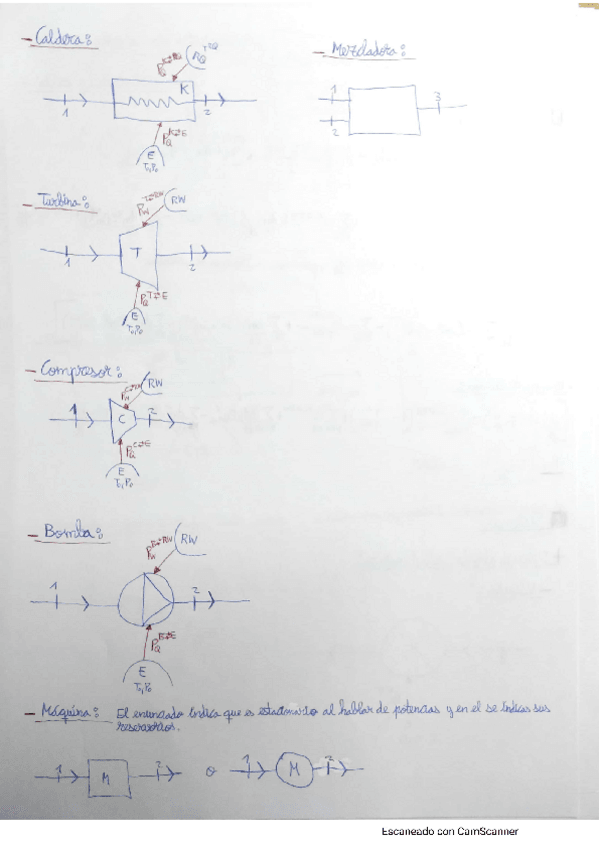 - Caldera:
RQ TRQ
PQ K⇄RQ
K
1
2
PQ K⇄E
E
T0,P0
- Mezcladora:
1
2
3
- Turbina:
PW T⇄RW
RW
T
1
2
PQ T⇄E
E
T0,P0
- Compresor:
RW
1
C
2
PQ C⇄E
E
T0,P0
- Bomba:
PW B⇄RW
RW
1
2
PQ B⇄E
E
T0,P0
- Máquina: El enunciado indica que es estacionario al hablar de potencias y en el se indica sus
reservorios.
1
M
2
o
1
M
2
Escaneado con CamScanner